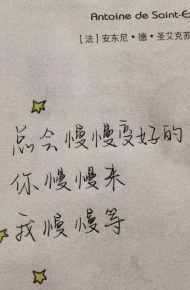 Antoine de Saint-E
［法］安东尼·德·圣艾克苏
总会慢慢变好的
你慢慢来
我慢慢等